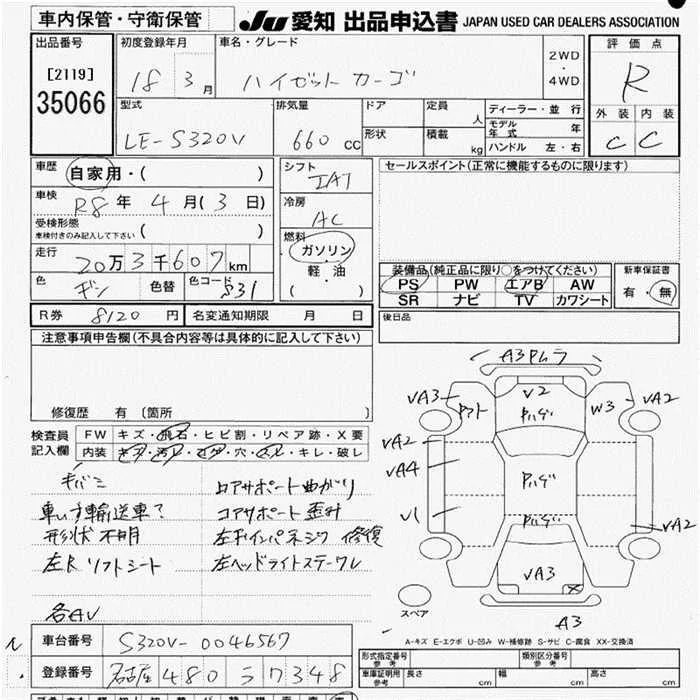 車内保管・守衛保管
JU 愛知 出品申込書 JAPAN USED CAR DEALERS ASSOCIATION
出品番号
[2119]
35066
初度登録年月
18 3月
車名・グレード
ハイゼットカーゴ
2WD
・
4WD
評価点
R
外装 内装
C C
型式
LE-S320V
排気量
660 cc
ドア
形状
定員 人
積載 kg
ディーラー・並行
モデル年式 年
ハンドル 左・右
車歴
自家用・( )
車検
R8年 4月(3日)
受検形態
車検付きのみ記入して下さい ( )
走行
20万3千607km
色
ギン 色替
色コード
S31
シフト
IAT
冷房
AC
燃料
ガソリン
軽・油
( )
セールスポイント(正常に機能するものに限ります)
装備品(純正品に限り○をつけてください)
PS PW エアB AW
SR ナビ TV カワシート
新車保証書
有・無
R券 8120 円 名変通知期限 月 日
後日品
注意事項申告欄(不具合内容等は具体的に記入して下さい)
修復歴 有〔箇所 〕
検査員
記入欄
FW キズ・飛石・ヒビ割・リペア跡・X要
内装 キズ・汚レ・コゲ・穴・スレ・キレ・破レ
車いす輸送車?
形状不明
左R リフトシート
各AV
上コアサポート曲がり
コアサポート歪み
左Fインパネジク修復
左ヘッドライトステーワレ
A3 Pムラ
VA3
V2
Pハゲ
W3
VA2
VA2
VA4
V1
Pハゲ
Pハゲ
VA2
VA3
X
A3
スペア
A-キズ E-エクボ U-凹み W-補修跡 S-サビ C-腐食 XX-交換済
車台番号 S320V-0046567
登録番号 名古屋 480 ラ 7348
形式指定番号
参考
類別区分番号
参考
車庫証明用
参考
長さ cm 幅 cm 高さ cm